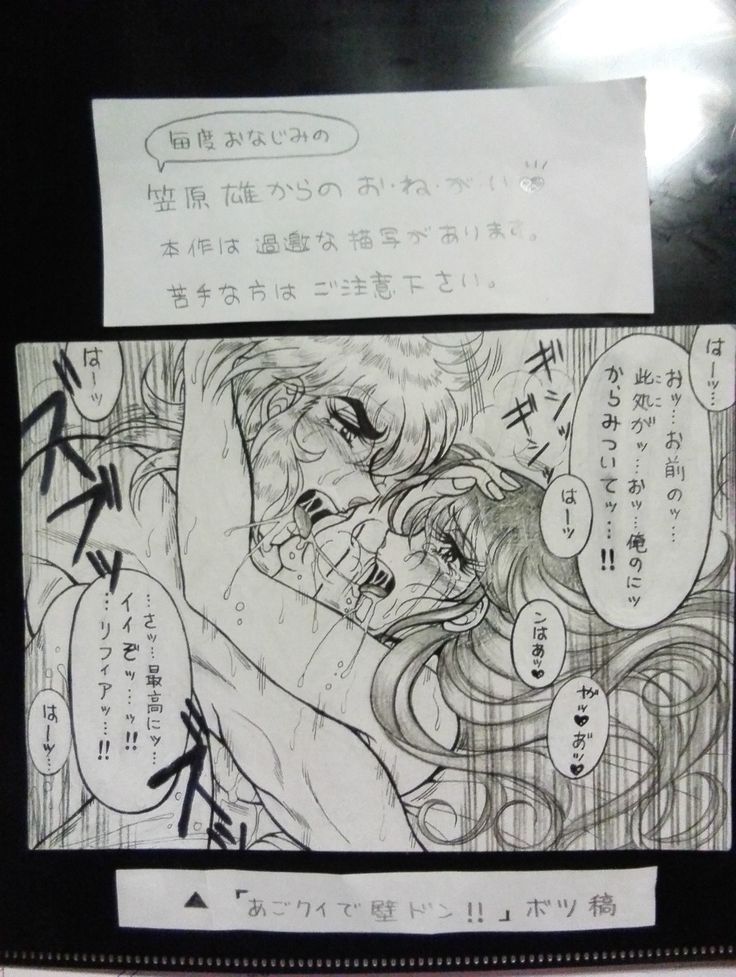 毎度おなじみの
笠原雄からのお・ね・が・い
本作は過激な描写があります。
苦手な方はご注意下さい。
はーッ…
おッ…お前のッ…
此処がッ…おッ…俺のにッ
からみついてッ…!!
ギシッ
ギシッ
はーッ
はーッ…
ズブッ
ンはあッ♥
やッ♥あ゛ッ♥
…さッ…最高にッ…
イイぞッ…ッ!!
…リフィアッ…!!
はーッ…
ズッ
▲「あごクイで壁ドン!!」ボツ稿